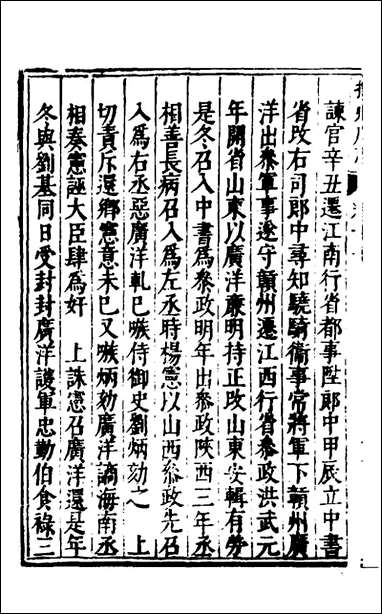 諫官辛丑遷江南行省都事陞郎中甲辰立中書
省改右司郎中尋知驍騎衛事常將軍下贛州廣
洋出叅軍事遂守贛州遷江西行省叅政洪武元
年開省山東以廣洋廉明持正改山東安輯有勞
是冬召入中書為叅政明年出叅政陝西三年丞
相善長病召入為左丞時楊憲以山西叅政先召
入為右丞惡廣洋軋已嗾侍御史劉炳劾之　上
切責斥還鄉憲意未巳又嗾炳劾廣洋謫海南丞
相奏憲誣大臣肆為奸　上誅憲召廣洋還是年
冬與劉基同日受封封廣洋護軍忠勤伯食祿三